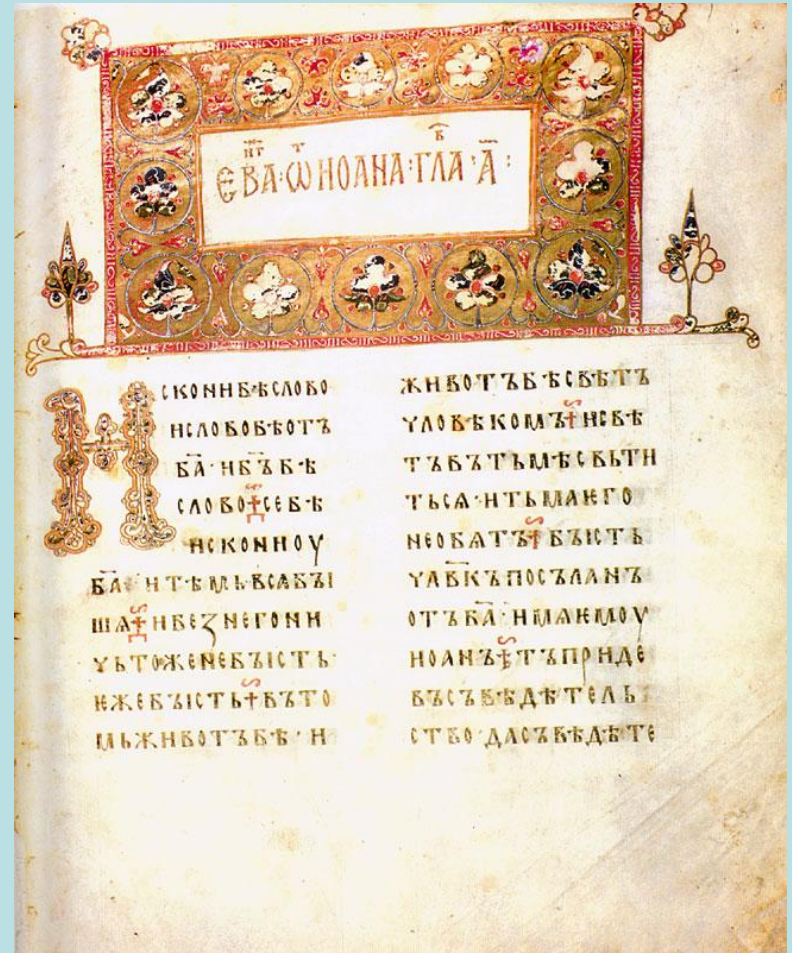 ЕВА҃НГ · Ѿ ИОАНА · ГЛАВ · А҃ :
ИСКОНИБѢСЛОВО
ИСЛОВОБѢОТЪ
БА҃ · ИБ҃ЪБѢ
СЛОВО СЕБѢ
ИСКОНИОУ
БА҃ · ИТѢМЬВСЯБЪІ
ШѦ ИБЕЗНЕГОНИ
ЧЬТОЖЕНЕБЪІСТЬ ·
ѤЖЕБЪІСТЬ ВЪТО
МЬЖИВОТЪБѢ · И
ЖИВОТЪБѢСВѢТЪ
ЧЛОВѢКОМЪ ИСВѢ
ТЪВЪТЬМѢСВЬТИ
ТЬСѦ · ИТЬМАѤГО
НЕОБѦТЪ БЪІСТЬ
ЧЛ҃ВКЪПОСЪЛАНЪ
ОТЪБА҃ · ИМѦѤМОУ
ИОАНЪ ТЪПРИДЕ
ВЪСЪВѢДѢТЕЛЬ
СТВО · ДАСЪВѢДѢТЕ